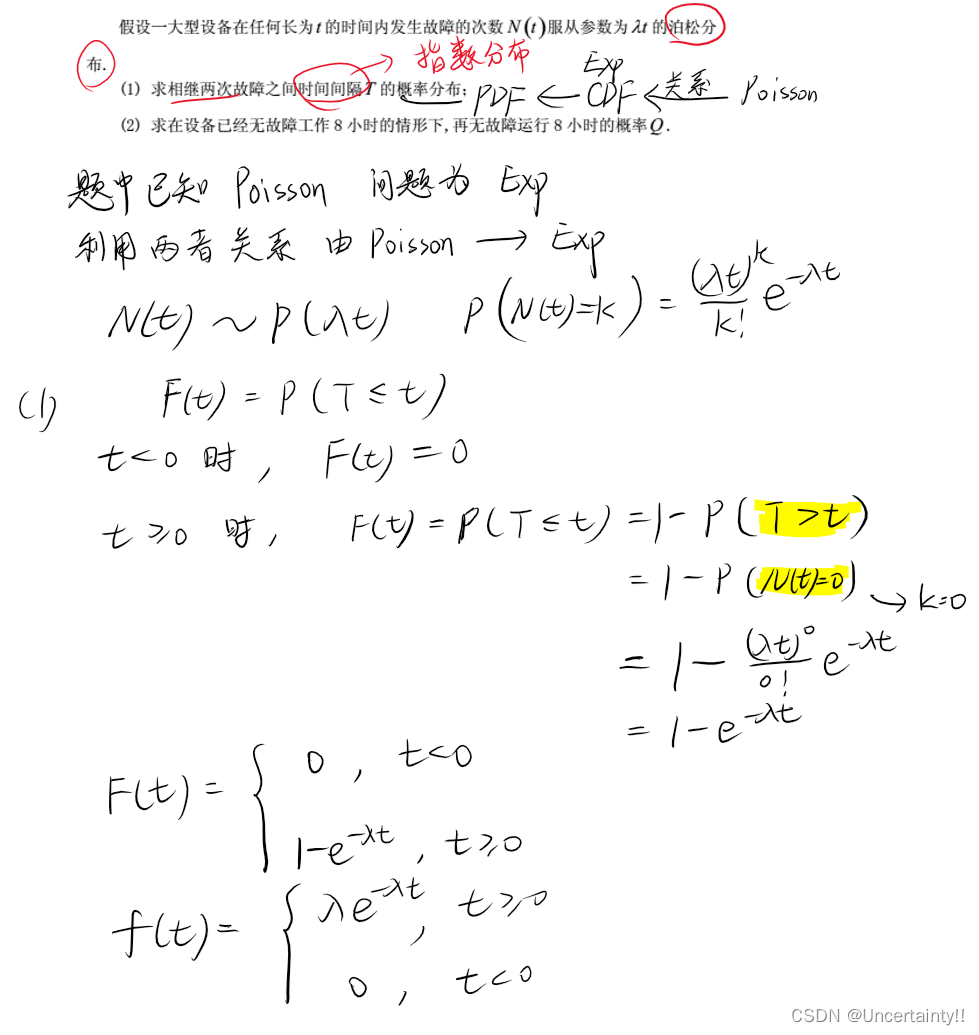 假设一大型设备在任何长为t的时间内发生故障的次数N(t)服从参数为λt的泊松分
布.
→ 指数分布
(1) 求相继两次故障之间时间间隔T的概率分布;
PDF ← Exp CDF ← 关系 Poisson
(2) 求在设备已经无故障工作8小时的情形下,再无故障运行8小时的概率Q.
题中已知 Poisson 问题为 Exp
利用两者关系 由 Poisson → Exp
N(t) ~ P(λt) P(N(t)=k) = (λt)^k/k! e^{-λt}
(1) F(t) = P(T ≤ t)
t<0 时, F(t) = 0
t≥0 时, F(t) = P(T≤t) = 1-P(T>t)
= 1-P(N(t)=0) → k=0
= 1 - (λt)^0/0! e^{-λt}
= 1-e^{-λt}
F(t) = { 0, t<0
1-e^{-λt}, t≥0
f(t) = { λe^{-λt}, t≥0
0, t<0
CSDN @Uncertainty!!